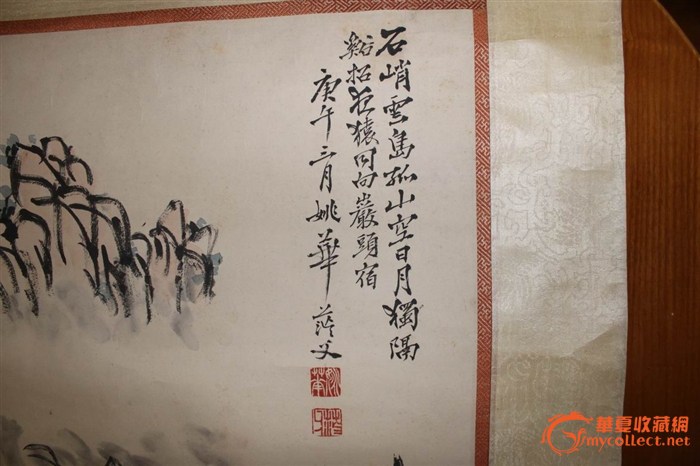 石峭雲島孤山空日月獨隔
谿招夜猿同向巖頭宿
庚午三月姚華茫父
姚華
茫父
華夏收藏網
mycollect.net